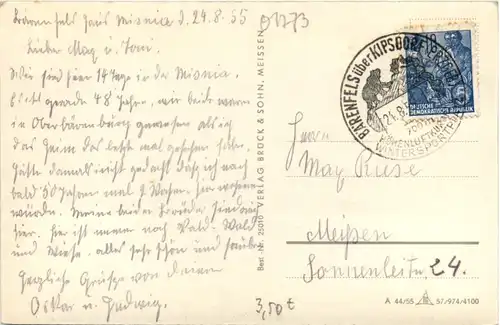 Bärenfels Haus Misnia d. 24.8.55
91773
Lieber Max u. Toni.
Wir sind hier 14 Tage in der Misnia.
Es ist gerade 48 Jahre, wir beide waren
in Oberbärenburg gewesen als ich
das Heim das letzt mal gesehen habe.
Hätte damals nicht gedacht daß ich nach
bald 50 Jahren mal 2 Wochen hier wohnen
würde. Meine beiden Brüder sind auch
hier.
Wald
und Wiese. alles sehr schön und sauber
Herzliche Grüsse von deinem
Oskar u. Hedwig.
Best. Nr. 25010 VERLAG BRÜCK & SOHN, MEISSEN
BÄRENFELS über KIPSDORF
24.8.
HÖHENLUFTKURORT
WINTERSPORTPLATZ
DEUTSCHE
DEMOKRATISCHE REPUBLIK
Herrn
Max Riese
Meißen
Sonnenleite 24.
3,50 €
A 44/55 57/974/4100